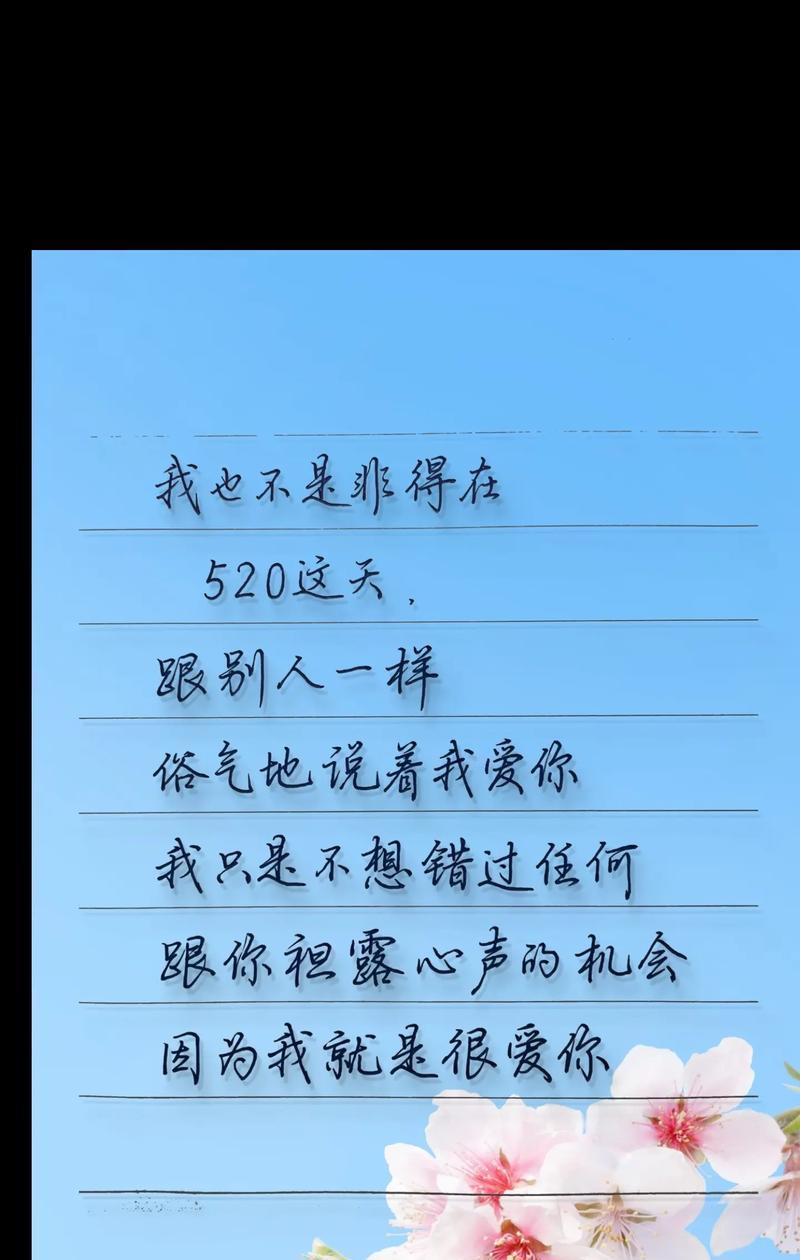 我也不是非得在
520这天，
跟别人一样
俗气地说着我爱你
我只是不想错过任何
跟你袒露心声的机会
因为我就是很爱你